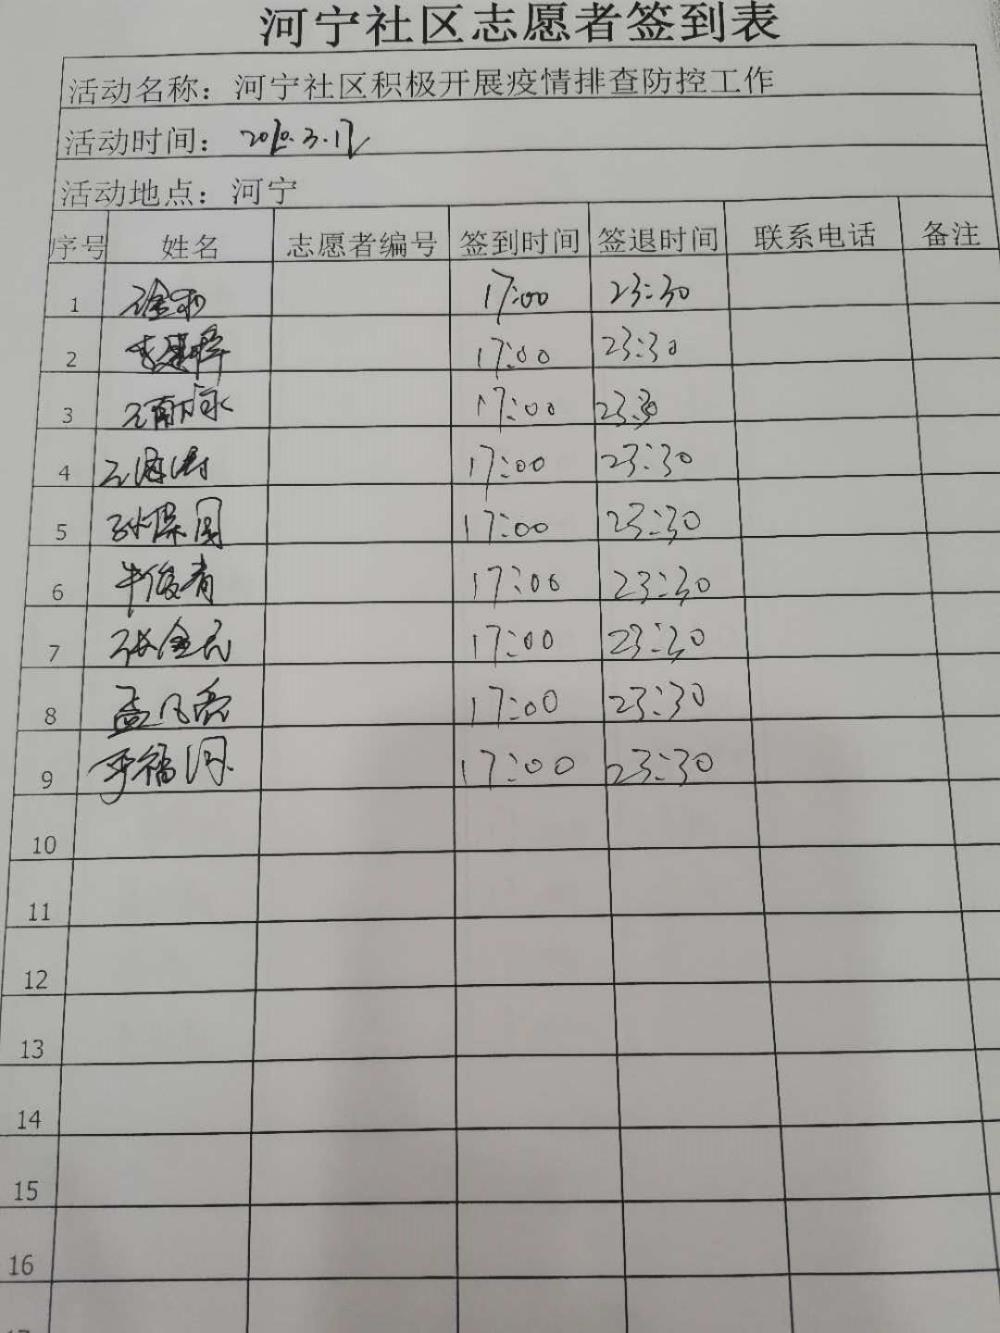 河宁社区志愿者签到表
活动名称：河宁社区积极开展疫情排查防控工作
活动时间：2020.3.17
活动地点：河宁
序号 姓名 志愿者编号 签到时间 签退时间 联系电话 备注
1 17:00 23:30
2 17:00 23:30
3 17:00 23:30
4 17:00 23:30
5 孙保国 17:00 23:30
6 牛俊青 17:00 23:30
7 张金民 17:00 23:30
8 17:00 23:30
9 17:00 23:30
10
11
12
13
14
15
16